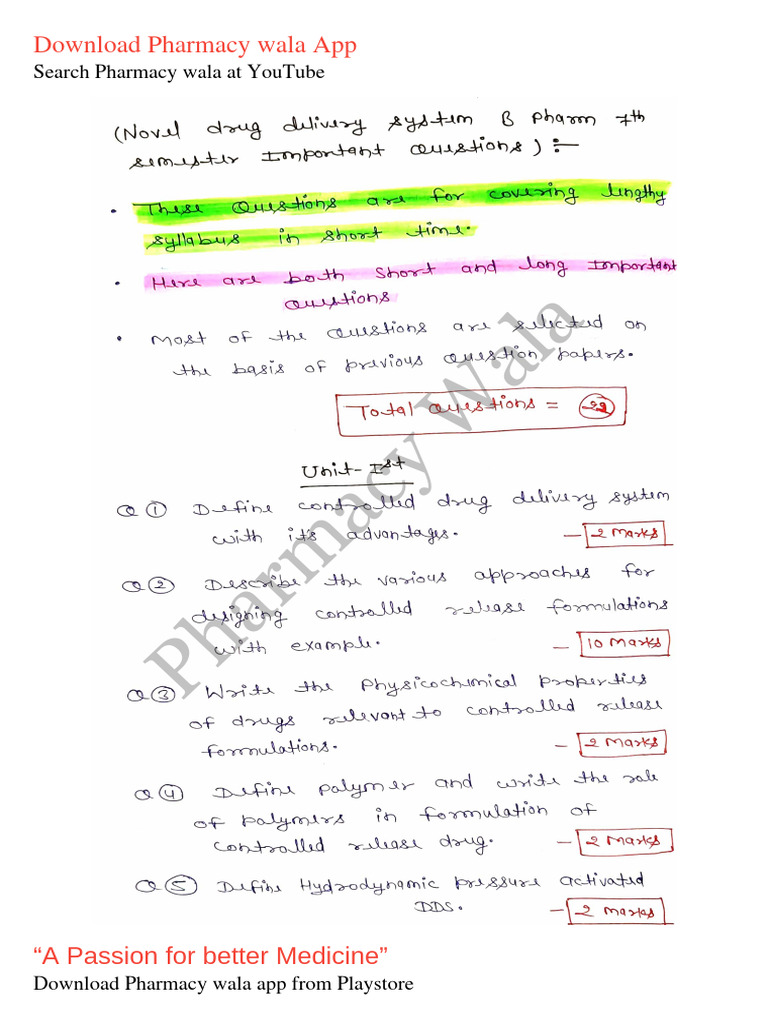 Download Pharmacy wala App
Search Pharmacy wala at YouTube
(Novel drug delivery system B pharm 7th
semester Important Questions) :-
• These Questions are for covering lengthy
syllabus in short time.
• Here are both short and long Important
Questions
• Most of the Questions are selected on
the basis of previous Question papers.
Total Questions = 22
Unit-Ist
Q ① Define controlled drug delivery system
with it's advantages. — 2 Marks
Q ② Describe the various approaches for
designing controlled release formulations
with example. — 10 Marks
Q ③ Write the physicochemical properties
of drugs relevant to controlled release
formulations. — 2 Marks
Q ④ Define polymer and write the role
of polymers in formulation of
controlled release drug. — 2 Marks
Q ⑤ Define Hydrodynamic pressure activated
DDS. — 2 Marks
Pharmacy Wala
“A Passion for better Medicine”
Download Pharmacy wala app from Playstore